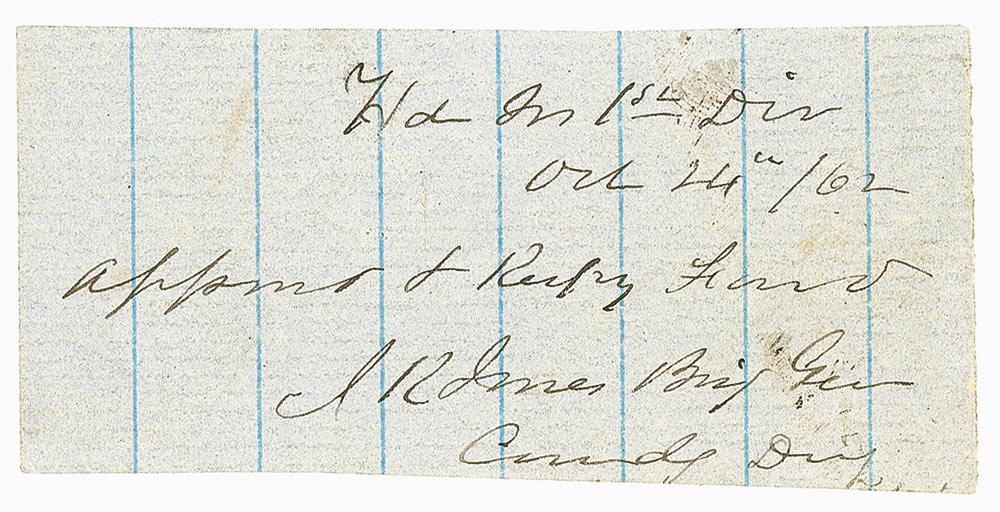 Hd Qrs 1st Div
Oct 24th /62
Approvd & Respy Forwd
J R Jones Brig Gen
Comdg Div